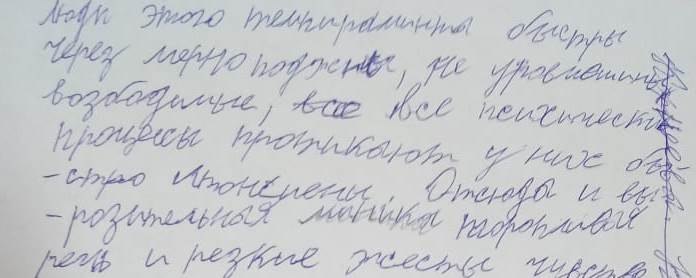 люди этого темпираминта быстры
через мерно поджны, не уровновишины
возбодимые, все психически
процесы протикают у них бы
-стро Отсюда и вы
-розительная мимика торопливая
речь и резкие жесты чувства